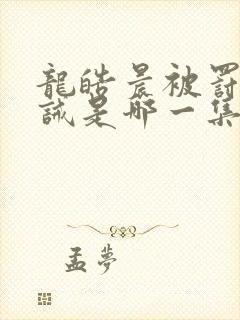 龍皓晨被罰
誡是哪一集
孟夢